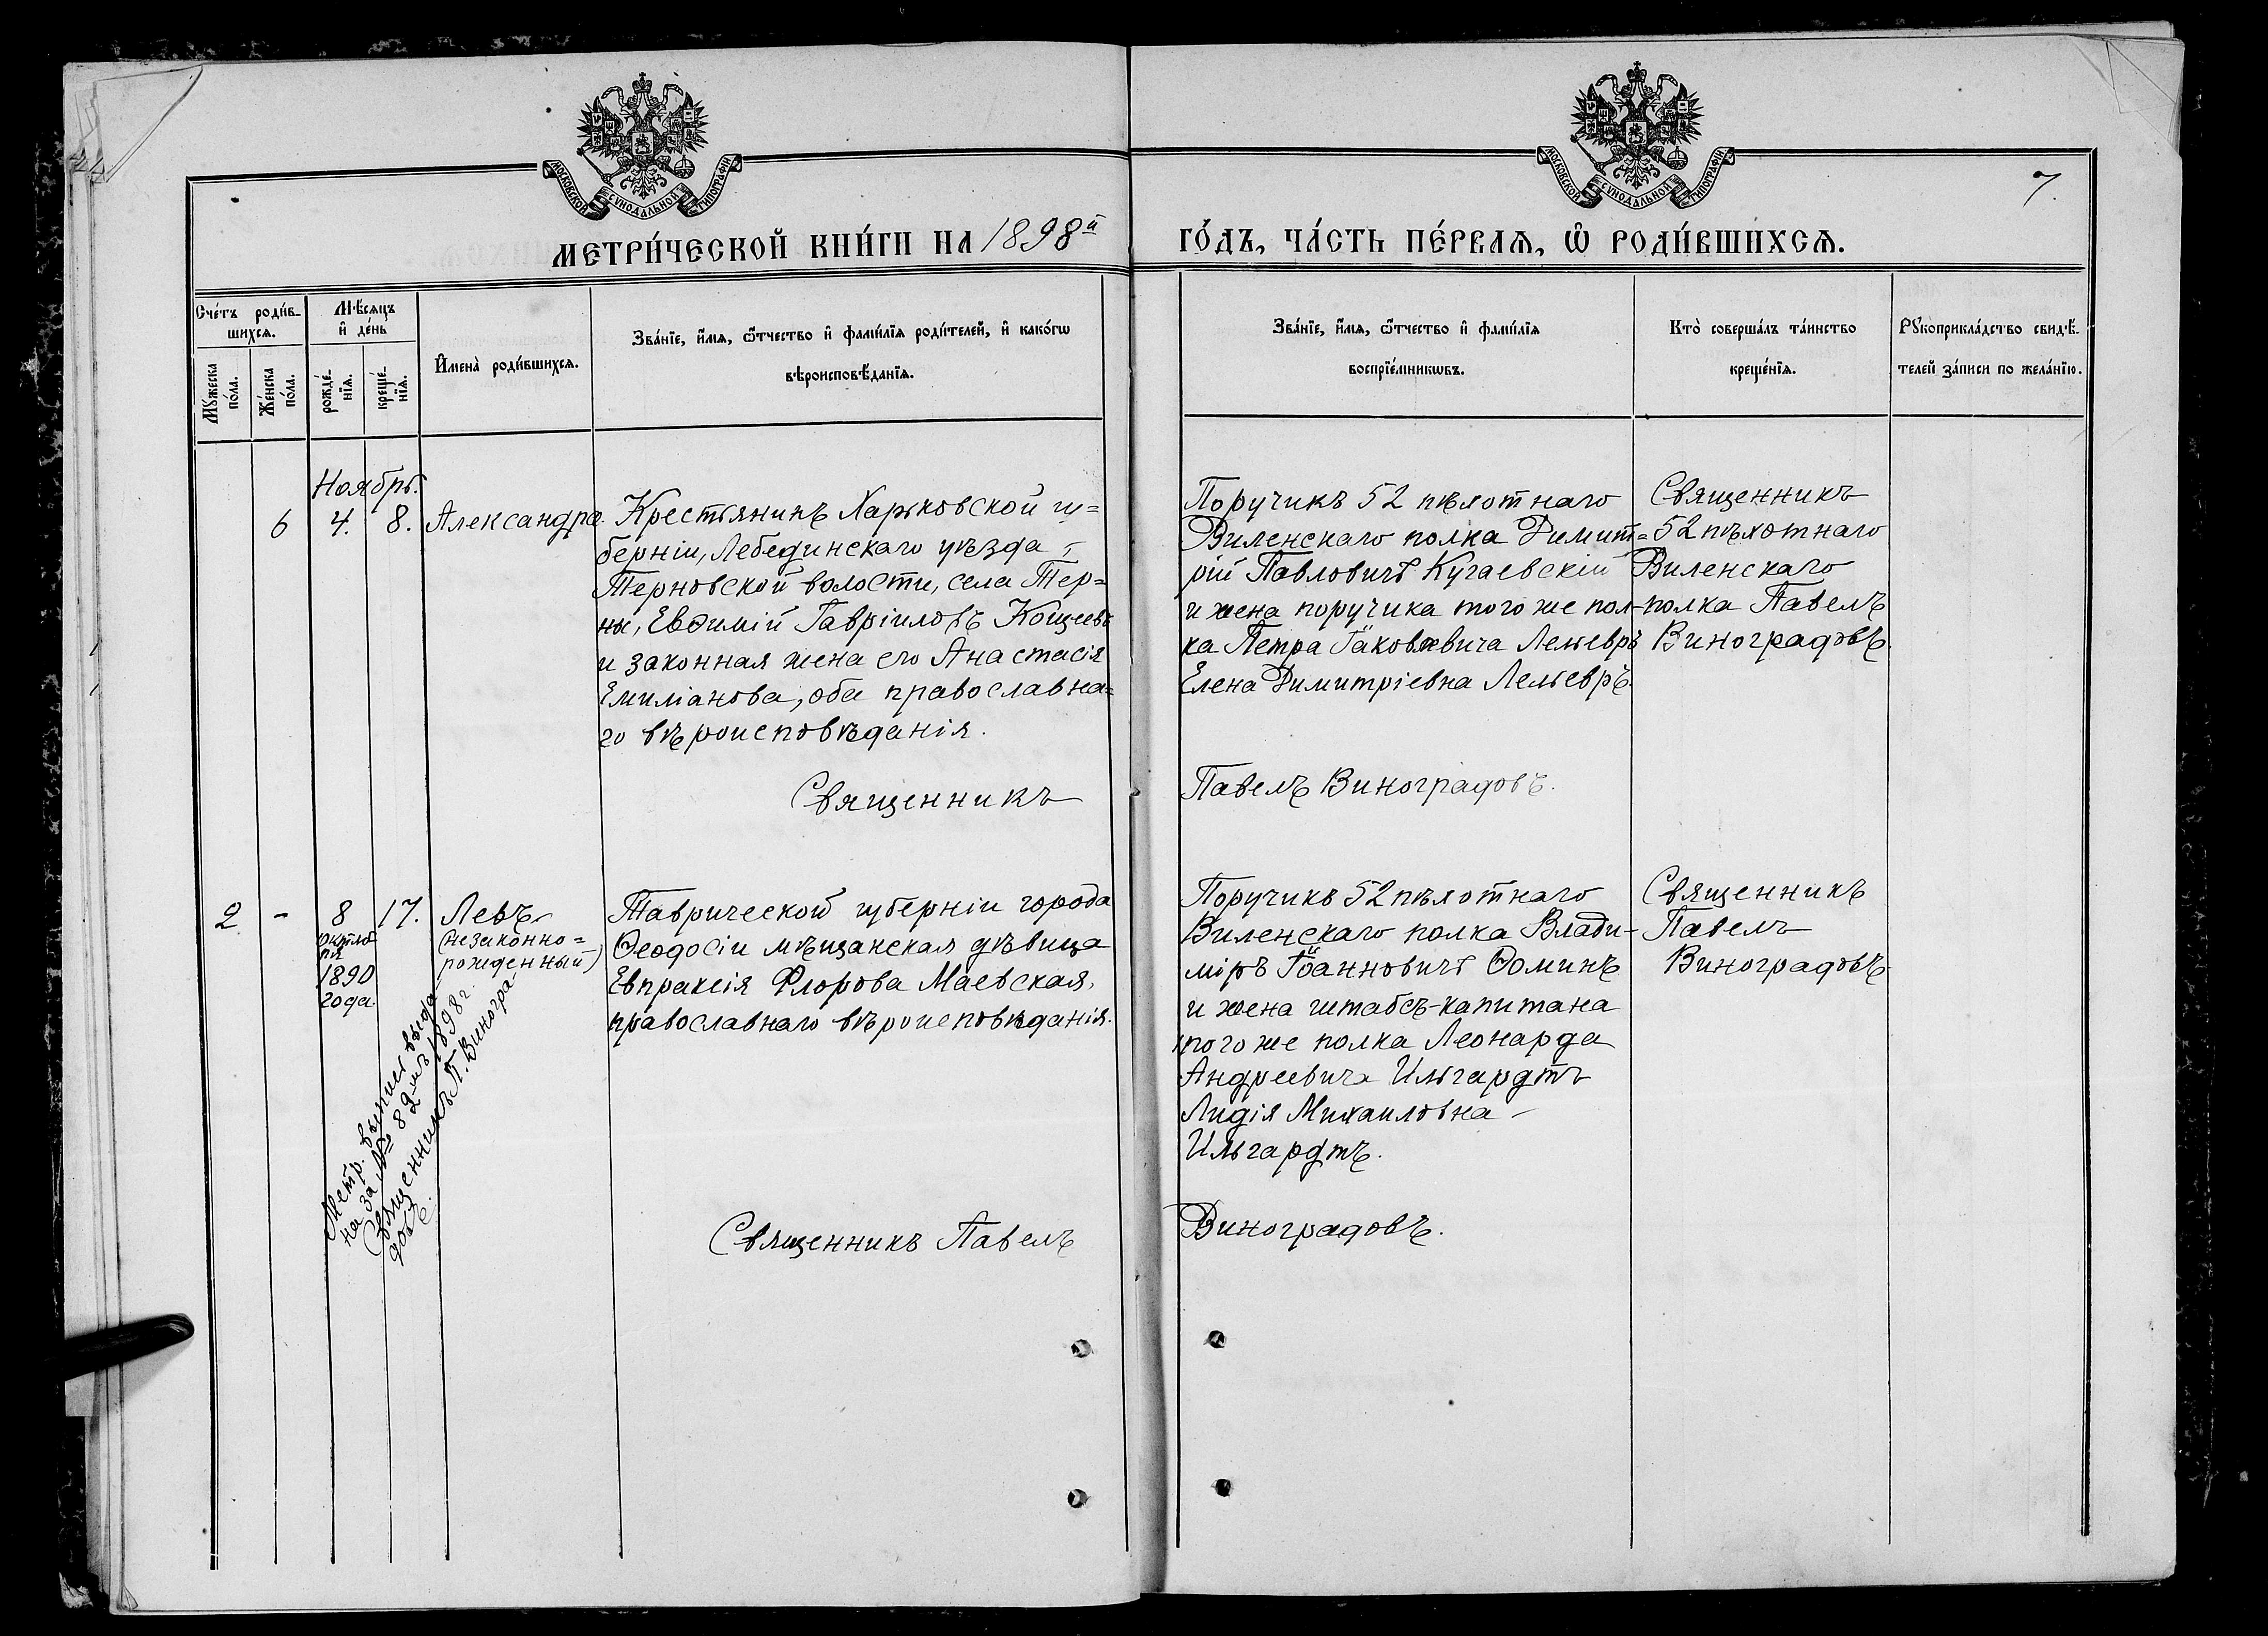 МОСКОВСКОЙ СѴНОДАЛЬНОЙ ТИПОГРАФІИ
МОСКОВСКОЙ СѴНОДАЛЬНОЙ ТИПОГРАФІИ
7.
МЕТРИ́ЧЕСКОЙ КНИ́ГИ НА 1898й
ГО́ДЪ, ЧА́СТЬ ПЕ́РВАѦ, Ѽ РОДИ́ВШИХСѦ.
Сче́тъ роди́в-
шихсѧ.
Мꙋ́жеска
по́ла.
Же́нска
по́ла.
Мѣ́сѧцъ
и҆ де́нь
рожде́-
нїѧ.
креще́-
нїѧ.
И҆мена̀ роди́вшихсѧ.
Зва́нїе, и҆́мѧ, ѻ҆́тчество и҆ фами́лїѧ роди́телей, и҆ како́гѡ
вѣроисповѣ́данїѧ.
Зва́нїе, и҆́мѧ, ѻ҆́тчество и҆ фами́лїѧ
воспрїе́мникѡвъ.
Кто̀ соверша́лъ та́инство
креще́нїѧ.
Рꙋкоприкла́дство свидѣ́-
телей за́писи по жела́нїю.
Ноябрь.
6 4. 8. Александра.
Крестьянинъ Харьковской гу=
берніи, Лебединскаго уѣзда,
Терновской волости, села Тер=
ны, Евѳимій Гавріиловъ Кощеевъ
и законная жена его Анастасія
Емиліанова, оба православна=
го вѣроисповѣданія.
Священникъ
Поручикъ 52 пѣхотнаго
Виленскаго полка Димит=
рій Павловичъ Кугаевскій
и жена поручика того же пол-
ка Петра Іаковлевича Лельевръ
Елена Димитріевна Лельевръ.
Павелъ Виноградовъ.
Священникъ
52 пѣхотнаго
Виленскаго
полка Павелъ
Виноградовъ.
2 - 8 17.
октяб
ря
1890
года.
Левъ
(незаконно=
рожденный)
Таврической губерніи города
Ѳеодосіи мѣщанская дѣвица
Евпраксія Флорова Маевская,
православнаго вѣроисповѣданія.
Метр. выпись выда-
на за № 82мъ 1898 г.
Священникъ П. Виногра
довъ.
Священникъ Павелъ
Поручикъ 52 пѣхотнаго
Виленскаго полка Влади-
міръ Іоанновичъ Ѳоминъ
и жена штабсъ-капитана
того же полка Леонарда
Андреевича Ильгардтъ
Лидія Михаиловна
Ильгардтъ.
Виноградовъ.
Священникъ
Павелъ
Виноградовъ